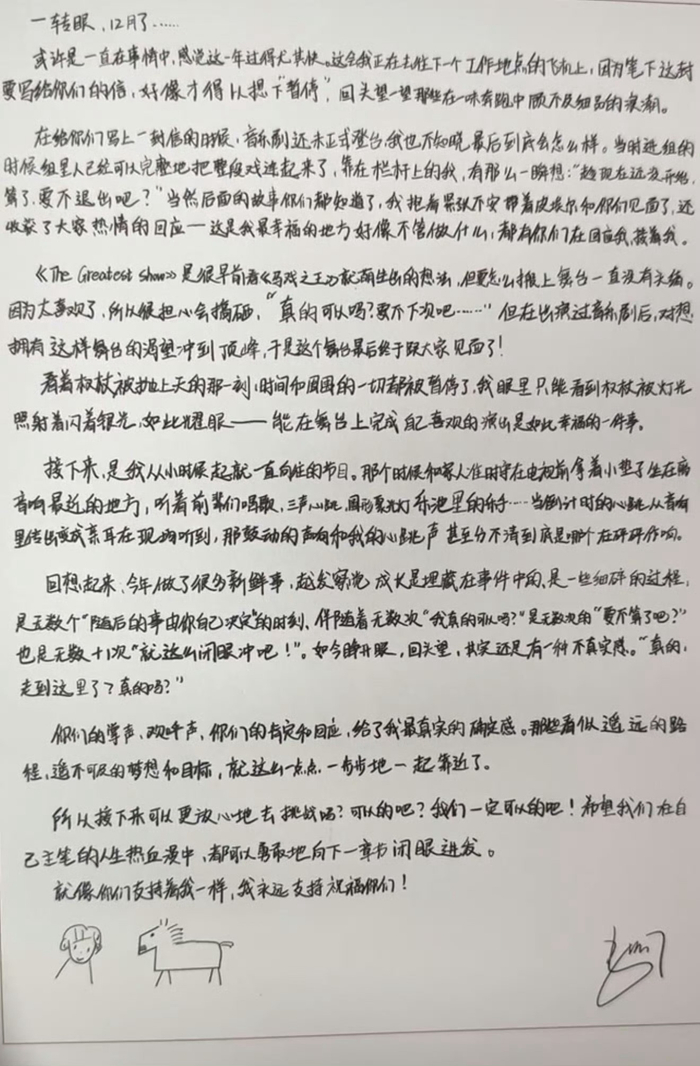 一转眼,12月了……
或许是一直在事情中,感觉这一年过得尤其快。这会我正在去往下一个工作地点的飞机上,因为笔下这封
要写给你们的信,好像才得以摁下“暂停”,回头望一望那些在一味奔跑中顾不及细品的浪潮。
在给你们写上一封信的时候,音乐剧还未正式登台,我也不知晓最后到底会怎么样。当时进组的
时候组里人已经可以完整地把整段戏连起来了,靠在栏杆上的我,有那么一瞬想:“趁现在还没开始,
算了,要不退出吧?”当然后面的故事你们都知道了,我抱着紧张不安带着皮埃尔和你们见面了,还
收获了大家热情的回应——这是我最幸福的地方好像不管做什么,都有你们在回应我,接着我。
《The Greatest Show》是很早前看《马戏之王》就萌生出的想法,但要怎么搬上舞台一直没有头绪。
因为太喜欢了,所以很担心会搞砸,“真的可以吗?要不下次吧……”但在出演过音乐剧后,对想
拥有这样舞台的渴望冲到顶峰,于是这个舞台最后终于跟大家见面了!
看着权杖被抛上天的那一刻,时间和周围的一切都被暂停了,我眼里只能看到权杖被灯光
照射着闪着银光,如此耀眼——能在舞台上完成自己喜欢的演出是如此幸福的一件事。
接下来,是我从小时候起就一直向往的节目。那个时候和家人准时守在电视前拿着小垫子坐在离
音响最近的地方,听着前辈们唱歌,三声心跳,圆形聚光灯 布池里的手……当倒计时的心跳从音响
里传出变成亲耳在现场听到,那鼓动的声响和我的心跳声 甚至分不清到底是哪个在砰砰作响。
回想起来,今年做了很多新鲜事,越发察觉 成长是埋藏在事件中的,是一些细碎的过程,
是无数个“随后的事由你自己决定”的时刻、伴随着无数次“我真的可以吗?”是无数次的“要不算了吧?”
也是无数+1次“就这么闭眼冲吧!”。如今睁开眼,回头望,其实还是有一种不真实感。“真的,
走到这里了?真的吗?”
你们的掌声、欢呼声,你们的肯定和回应,给了我最真实的确定感。那些看似遥远的路
程,遥不可及的梦想和目标,就这么一点点 一步步地一起靠近了。
所以接下来可以更放心地去挑战吗?可以的吧?我们一定可以的吧!希望我们在自
己主笔的人生热血漫中,都可以勇敢地向下一章节闭眼进发。
就像你们支持着我一样,我永远支持祝福你们!